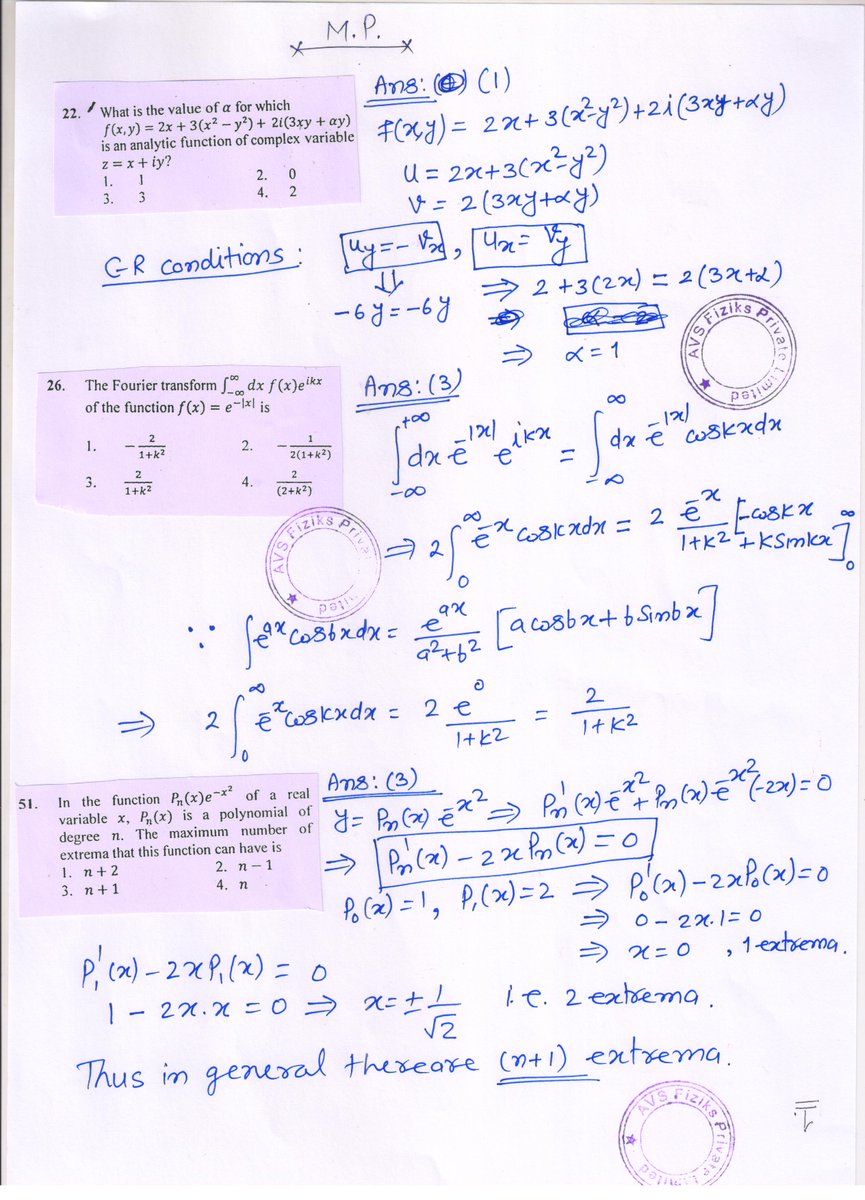 M.P.
22. What is the value of α for which
f(x,y) = 2x + 3(x² − y²) + 2i(3xy + αy)
is an analytic function of complex variable
z = x + iy?
1. 1 2. 0
3. 3 4. 2
Ans: (1)
f(x,y) = 2x+3(x²-y²)+2i(3xy+αy)
u = 2x+3(x²-y²)
v = 2(3xy+αy)
C-R conditions : uy = - vx , ux = vy
⇓ ⇒ 2+3(2x) = 2(3x+α)
-6y = -6y ⇒
⇒ α = 1
AVS Fiziks Private Limited
26. The Fourier transform ∫_{-∞}^{∞} dx f(x)e^{ikx}
of the function f(x) = e^{-|x|} is
1. -2/(1+k²) 2. -1/(2(1+k²))
3. 2/(1+k²) 4. 2/(2+k²)
Ans: (3)
∫_{-∞}^{+∞} dx e^{-|x|} e^{ikx} = ∫_{-∞}^{∞} dx e^{-|x|} coskxdx
⇒ 2∫_0^∞ e^{-x} coskxdx = 2 e^{-x}/(1+k²) [-coskx + kSinkx]_0^∞
AVS Fiziks Private Limited
∵ ∫e^{ax} cosbxdx = e^{ax}/(a²+b²) [acosbx+bSinbx]
⇒ 2∫_0^∞ e^{-x} coskxdx = 2 e^0/(1+k²) = 2/(1+k²)
51. In the function Pn(x)e^{-x²} of a real
variable x, Pn(x) is a polynomial of
degree n. The maximum number of
extrema that this function can have is
1. n+2 2. n−1
3. n+1 4. n
Ans: (3)
y = Pn(x) e^{-x²} ⇒ Pn'(x) e^{-x²} + Pn(x) e^{-x²} (-2x) = 0
⇒ Pn'(x) - 2xPn(x) = 0
P₀(x) = 1, P₁(x) = 2 ⇒ P₀'(x) - 2xP₀(x) = 0
⇒ 0 - 2x.1 = 0
⇒ x = 0 , 1 extrema.
P₁'(x) - 2xP₁(x) = 0
1 - 2x.x = 0 ⇒ x = ± 1/√2 i.e. 2 extrema.
Thus in general thereare (n+1) extrema.
AVS Fiziks Private Limited
1.